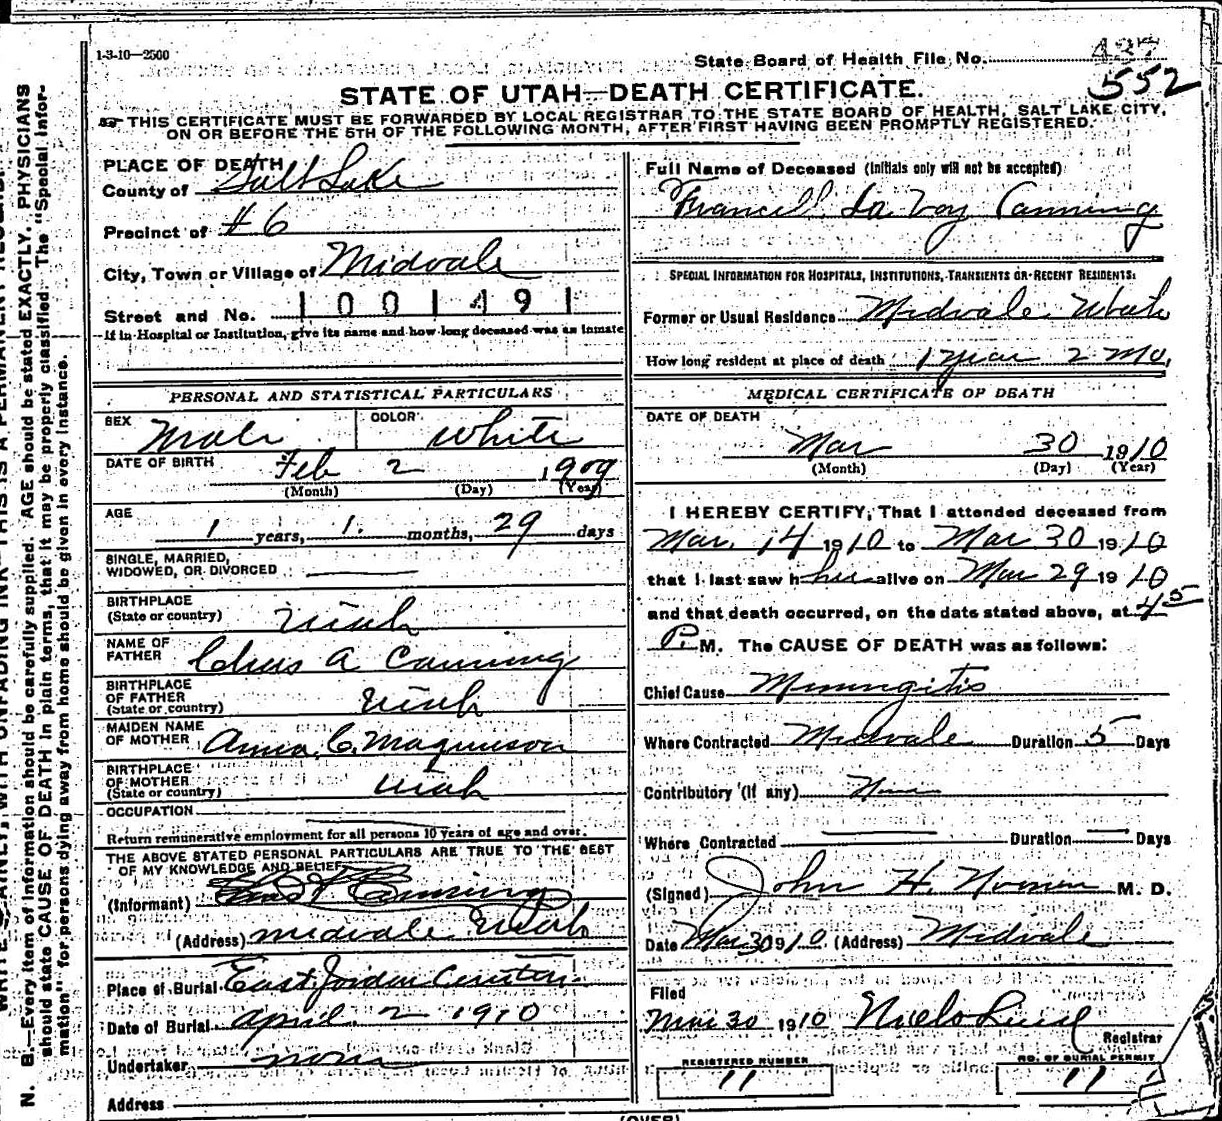 1-3-10—2500
State Board of Health File No. 437
552
STATE OF UTAH—DEATH CERTIFICATE.
THIS CERTIFICATE MUST BE FORWARDED BY LOCAL REGISTRAR TO THE STATE BOARD OF HEALTH, SALT LAKE CITY,
ON OR BEFORE THE 5TH OF THE FOLLOWING MONTH, AFTER FIRST HAVING BEEN PROMPTLY REGISTERED.
PLACE OF DEATH
County of Salt Lake
Precinct of #6
City, Town or Village of Midvale
Street and No. 1001491
If in Hospital or Institution, give its name and how long deceased was an inmate
PERSONAL AND STATISTICAL PARTICULARS
SEX Male COLOR White
DATE OF BIRTH Feb 2 1909
(Month) (Day) (Year)
AGE 1 years, 1 months, 29 days
SINGLE, MARRIED,
WIDOWED, OR DIVORCED
BIRTHPLACE
(State or country) Utah
NAME OF
FATHER Chas A Canning
BIRTHPLACE
OF FATHER
(State or country) Utah
MAIDEN NAME
OF MOTHER Anna C. Magnuson
BIRTHPLACE
OF MOTHER
(State or country) Utah
OCCUPATION
Return remunerative employment for all persons 10 years of age and over.
THE ABOVE STATED PERSONAL PARTICULARS ARE TRUE TO THE BEST
OF MY KNOWLEDGE AND BELIEF
(Informant) Canning
(Address) Midvale Utah
Place of Burial East Jordan
Date of Burial April 2 1910
Undertaker none
Address
Full Name of Deceased (Initials only will not be accepted)
La Voy Canning
SPECIAL INFORMATION FOR HOSPITALS, INSTITUTIONS, TRANSIENTS OR RECENT RESIDENTS:
Former or Usual Residence Midvale Utah
How long resident at place of death 1 year 2 Mo,
MEDICAL CERTIFICATE OF DEATH
DATE OF DEATH
Mar 30 1910
(Month) (Day) (Year)
I HEREBY CERTIFY, That I attended deceased from
Mar. 14 1910 to Mar 30 1910
that I last saw h alive on Mar 29 1910
and that death occurred, on the date stated above, at 45
P. M. The CAUSE OF DEATH was as follows:
Chief Cause Meningitis
Where Contracted Midvale Duration 5 Days
Contributory (If any) None
Where Contracted Duration Days
(Signed) John H. M. D.
Date Mar 30 1910 (Address) Midvale
Filed
Mar 30 1910
Registrar
REGISTERED NUMBER
11
NO. OF BURIAL PERMIT
11
(OVER)
N. B.—Every item of information should be carefully supplied. AGE should be stated EXACTLY. PHYSICIANS
should state CAUSE OF DEATH in plain terms, that it may be properly classified. The "Special Infor-
mation" for persons dying away from home should be given in every instance.